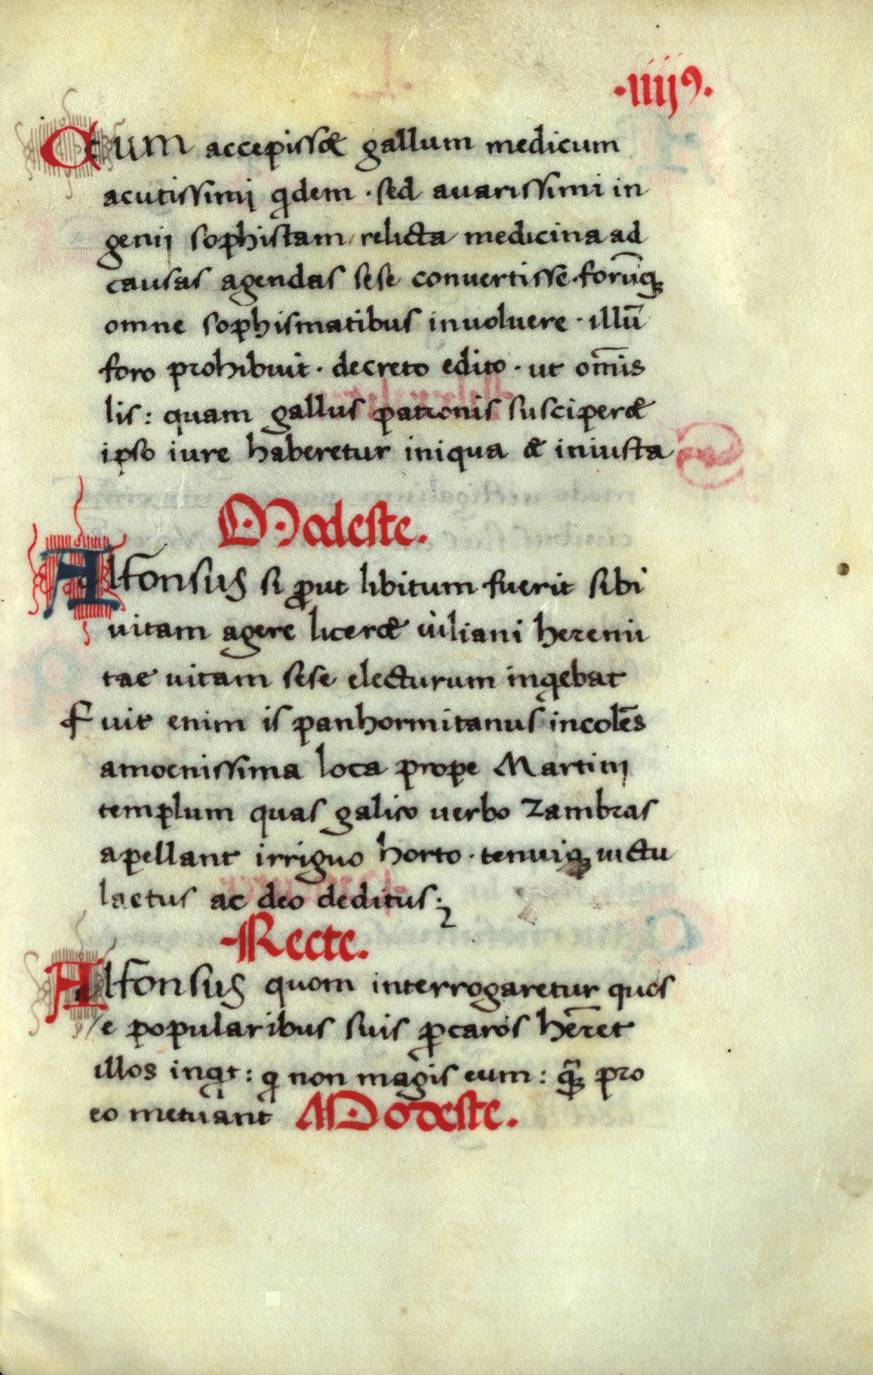 ·iiij9·
Cum accepisset gallum medicum
acutissimi q̄dem · sed auarissimi in
genij sophistam / relicta medicina ad
causas agendas sese conuertisse · forūq̄
omne sophismatibus inuoluere · illū
foro prohibuit · decreto edito · ut om̄is
lis : quam gallus patronis susciperet
ipso iure haberetur iniqua & iniusta
Modeste.
Alfonsus si ꝓut libitum fuerit sibi
uitam agere liceret iuliani heremi
tae uitam sese electurum inqebat
fuit enim is panhormitanus incolēs
amoenissima loca prope Martini
templum quas galico uerbo Zambras
apellant irriguo horto · tenuiq; uictu
laetus ac deo deditus ;
Recte.
Alfonsus quom interrogaretur quos
e popularibus suis p̄caros hēret
illos inqt : q non magis eum : q̄ꝫ pro
eo metuant Modeste.